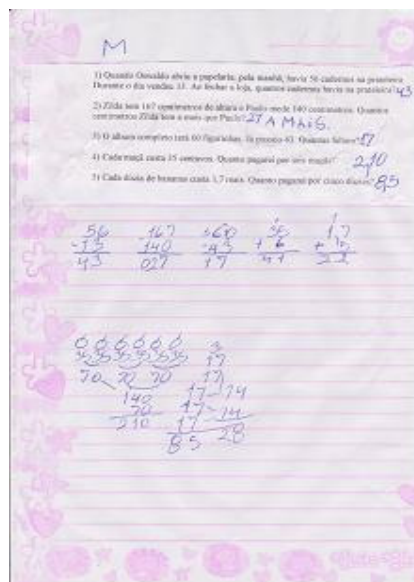 M
1) Quando Oswaldo abriu a papelaria, pela manhã, havia 56 cadernos na prateleira.
Durante o dia vendeu 13. Ao fechar a loja, quantos cadernos havia na prateleira? 43
2) Zilda tem 167 centímetros de altura e Paulo mede 140 centímetros. Quantos
centímetros Zilda tem a mais que Paulo? 27 A MAIS.
3) O álbum completo terá 60 figurinhas. Já possuo 43. Quantas faltam? 17
4) Cada maçã custa 35 centavos. Quanto pagarei por seis maçãs? 2,10
5) Cada dúzia de bananas custa 1,7 reais. Quanto pagarei por cinco dúzias? 8,5
56 167 60 17
-13 140 -43
43 027 17 41 22
35 35 35 35 35 35 17
70 70 70 17
140 17 14
70 17 14
210 17 28
85